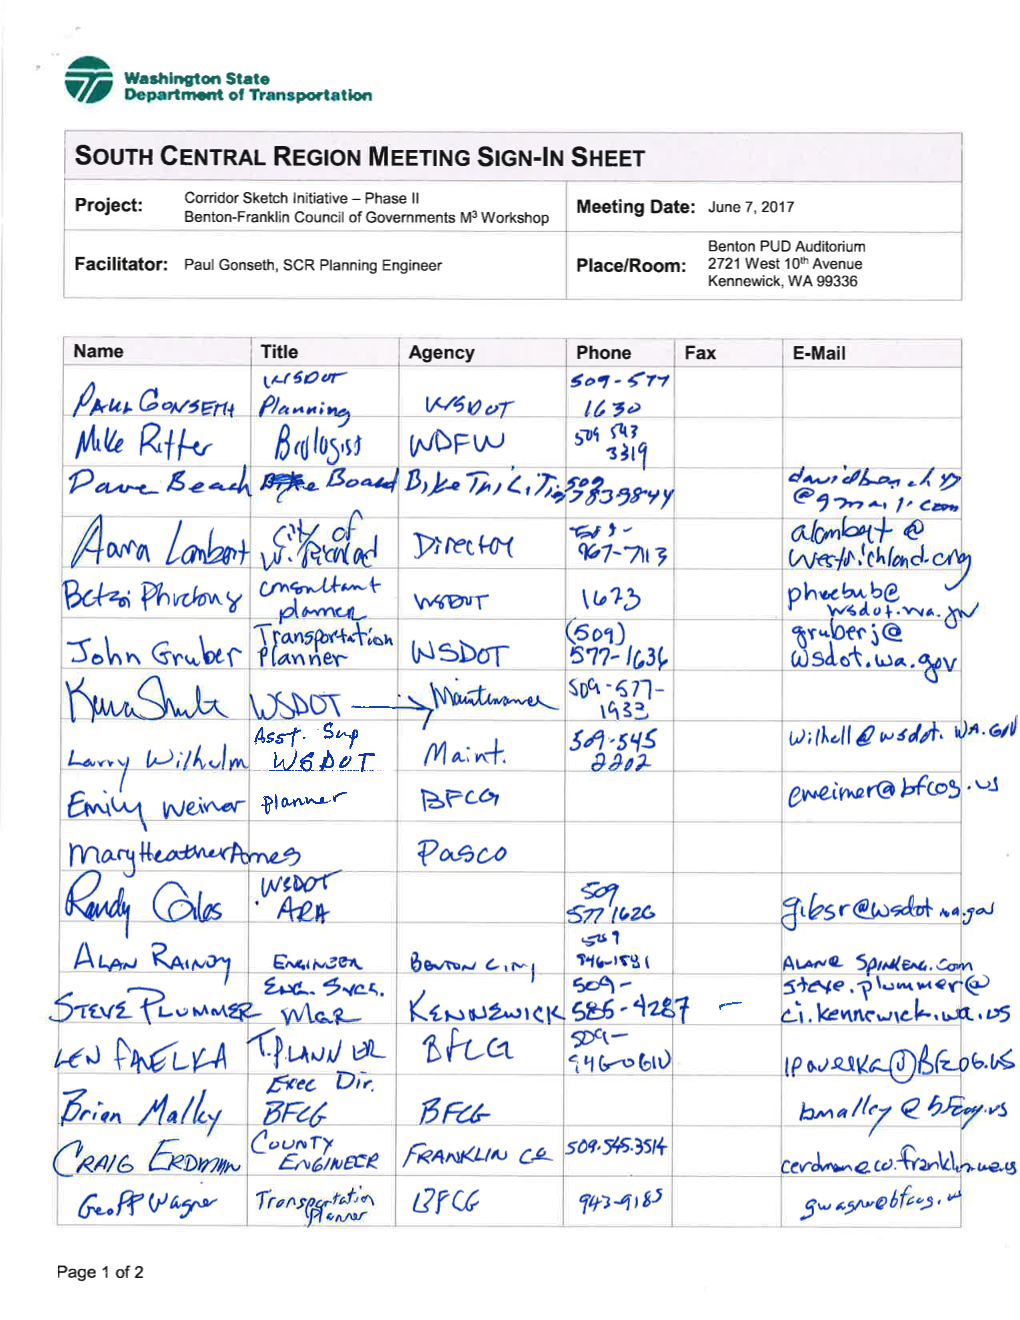 Washington State
Department of Transportation
SOUTH CENTRAL REGION MEETING SIGN-IN SHEET
Project: Corridor Sketch Initiative – Phase II
Benton-Franklin Council of Governments M³ Workshop
Meeting Date: June 7, 2017
Facilitator: Paul Gonseth, SCR Planning Engineer
Place/Room: Benton PUD Auditorium
2721 West 10th Avenue
Kennewick, WA 99336
Name Title Agency Phone Fax E-Mail
PAUL GONSETH WSDOT Planning WSDOT 509-577 1630
Mike Ritter Biologist WDFW 509 543 3319
Dave Beach Bike Board Bike Tri Cities 509 7839844 @gmail.com
Aara Lambert City of W. Richland Director 967-7113 alambert@ westrichland.org
consultant planner WSDOT 1673 phoebub@ wsdot.wa.gov
John Gruber Transportation Planner WSDOT (509) 577-1636 gruberj@ wsdot.wa.gov
WSDOT → Maintenance 509-577-1933
Larry Wilhelm Asst. Sup WSDOT Maint. 509-545 2202 wilhell@wsdot.WA.GOV
Emily Weiner planner BFCG eweimer@bfcog.us
Mary Heather Ames Pasco
Randy Giles WSDOT ARA 509 577 1626 @wsdot.wa.gov
ALAN RAINEY ENGINEER BENTON CITY 509 946-1581 ALAN@ SPINKENG.COM
STEVE PLUMMER ENG. SVCS. MGR KENNEWICK 509-585-4287 — steve.plummer@ ci.kennewick.wa.us
LEN PAVELKA T.PLANNER BFCG 509-946-0610 lpavelka@Bfcog.us
Brian Malley Exec Dir. BFCG BFCG bmalley@bfcog.us
CRAIG ERDMAN COUNTY ENGINEER FRANKLIN CO. 509.545.3514 cerdman@co.franklin.wa.us
Geoff Wagner Transportation planner BFCG 943-9185 gwagner@bfcog.us
Page 1 of 2